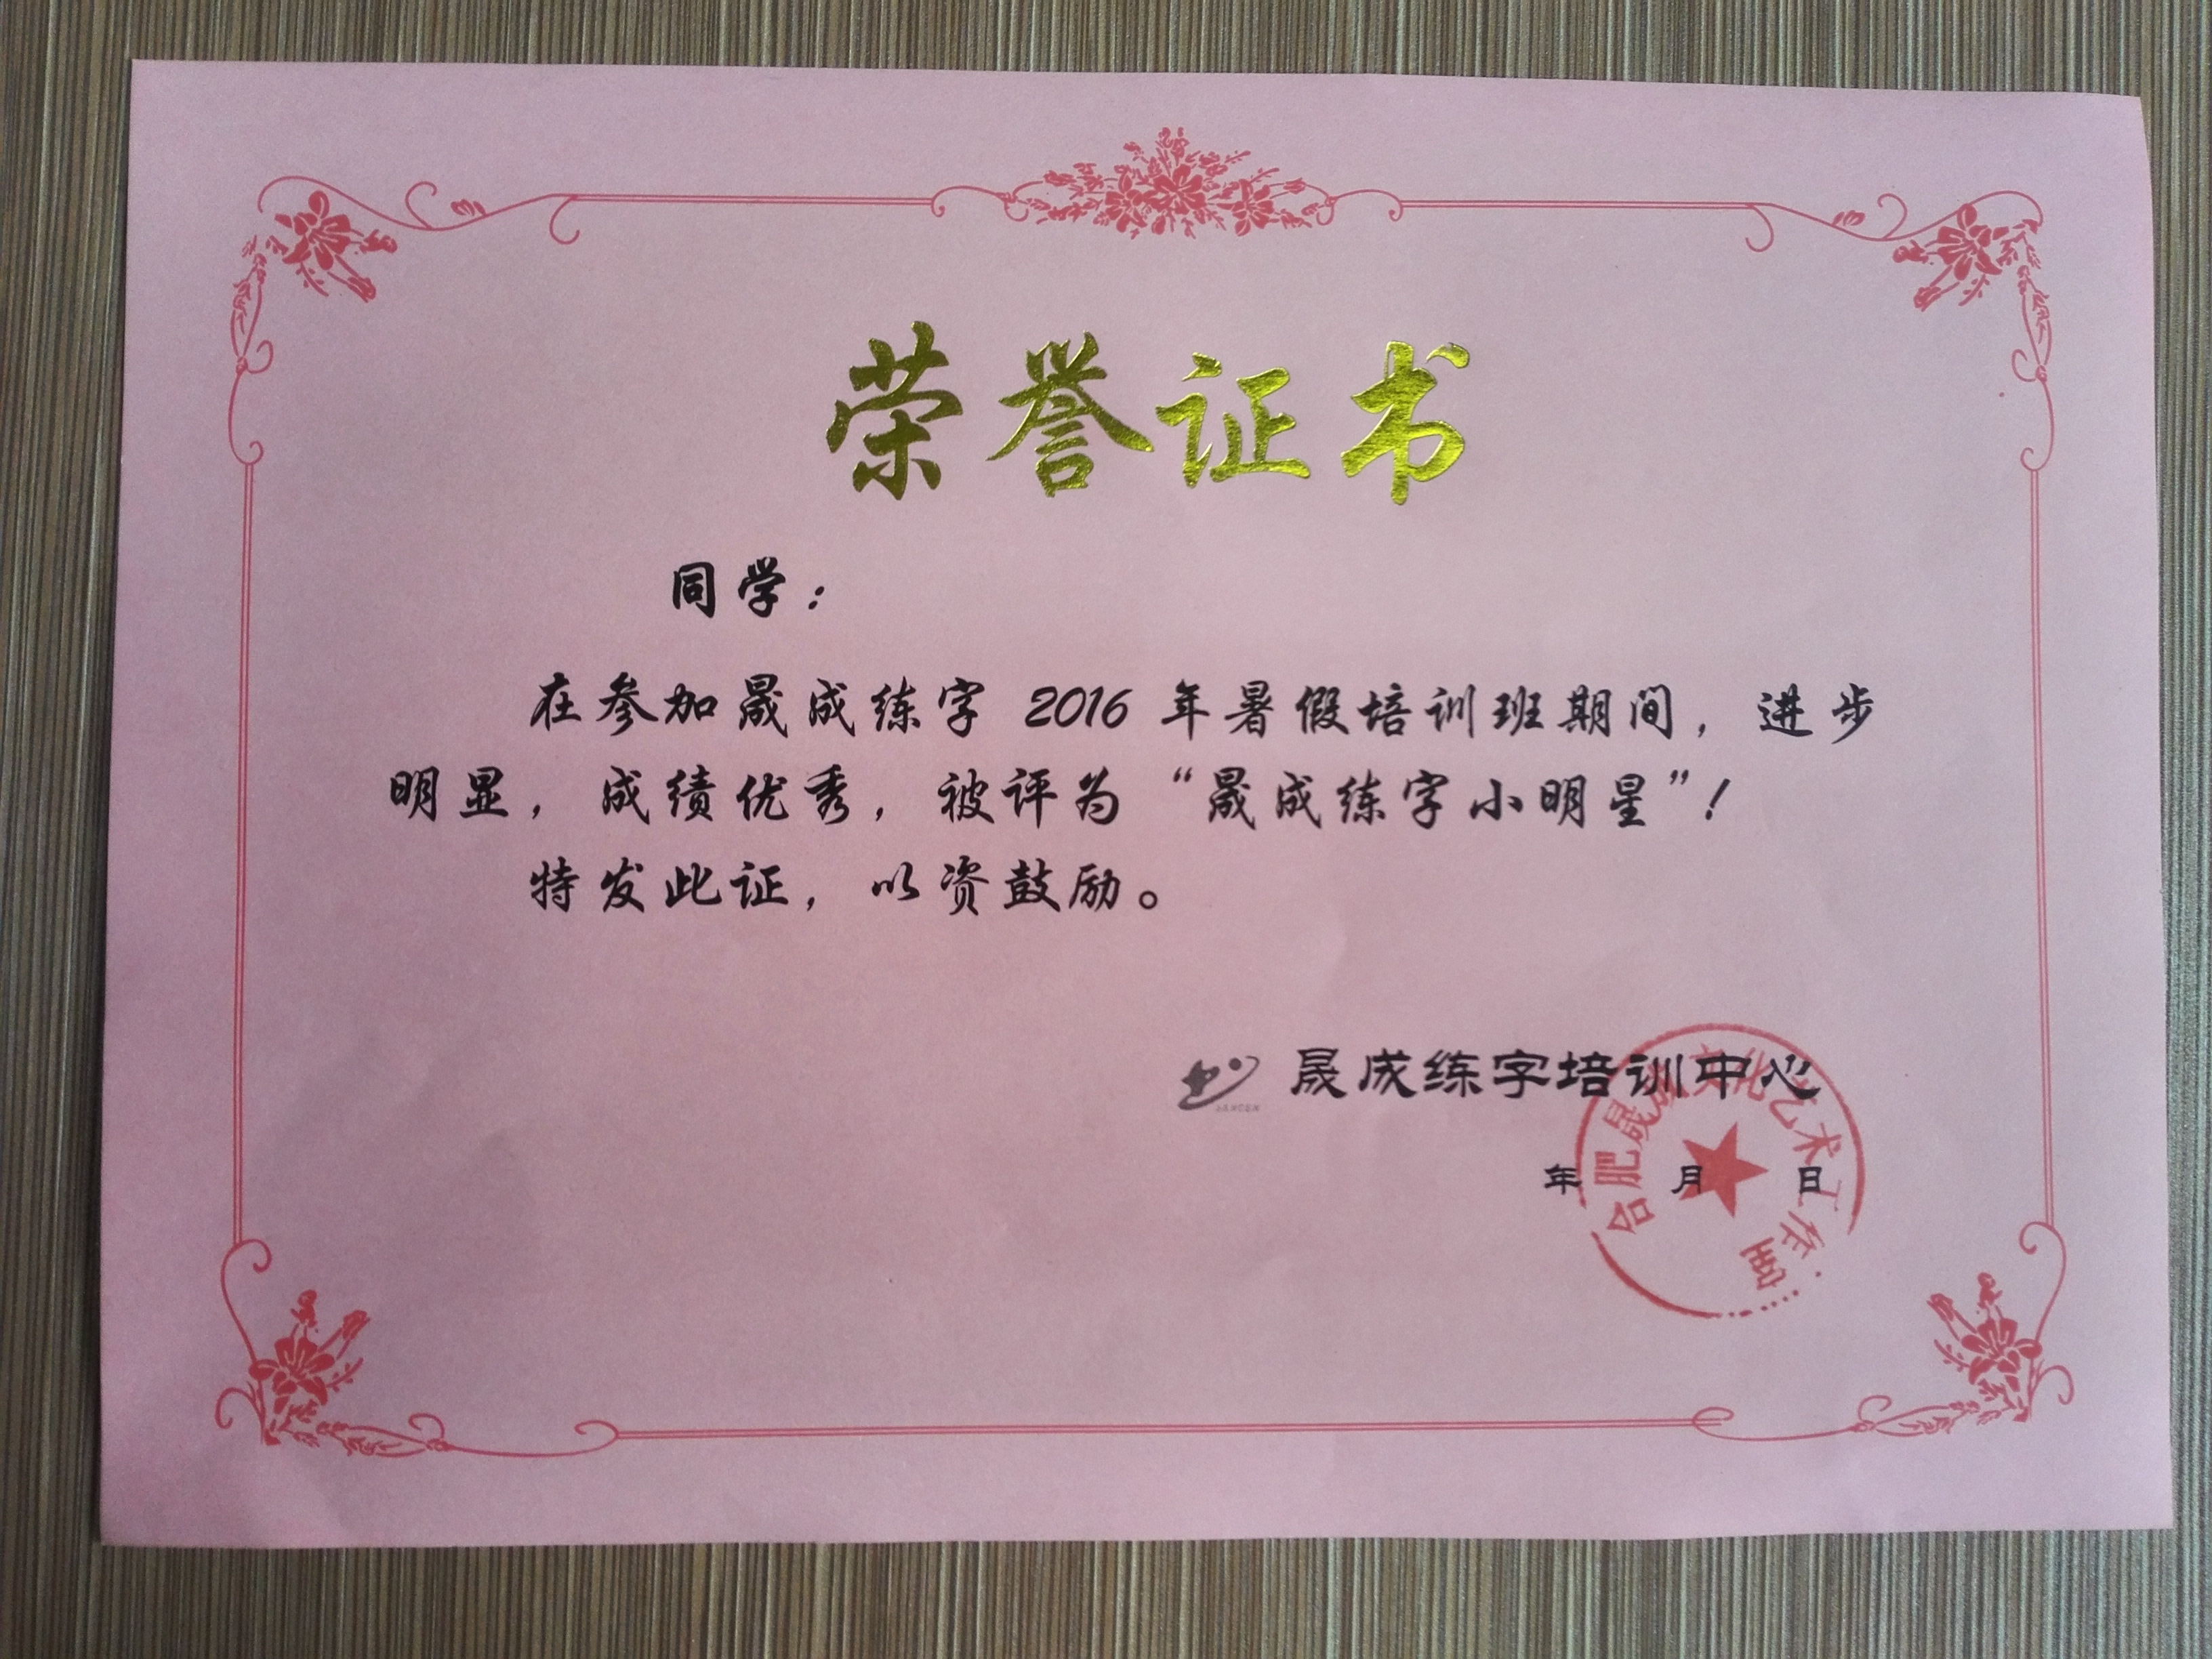 荣誉证书
同学：
在参加晟成练字 2016 年暑假培训班期间，进步
明显，成绩优秀，被评为“晟成练字小明星”！
特发此证，以资鼓励。
晟成练字培训中心
年 月 日
合肥晟成文化艺术工作室